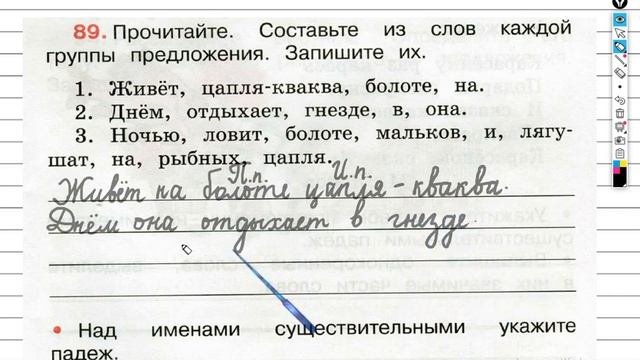 89. Прочитайте. Составьте из слов каждой
группы предложения. Запишите их.
1. Живёт, цапля-кваква, болоте, на.
2. Днём, отдыхает, гнезде, в, она.
3. Ночью, ловит, болоте, мальков, и, лягу-
шат, на, рыбных, цапля.
П.п. И.п.
Живёт на болоте цапля-кваква.
Днём она отдыхает в гнезде.
• Над именами существительными укажите
падеж.